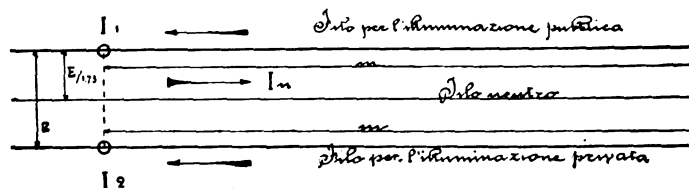 I 1
Filo per l'illuminazione pubblica
m
E/1.73
I n
Filo neutro
E
m
Filo per l'illuminazione privata
I 2